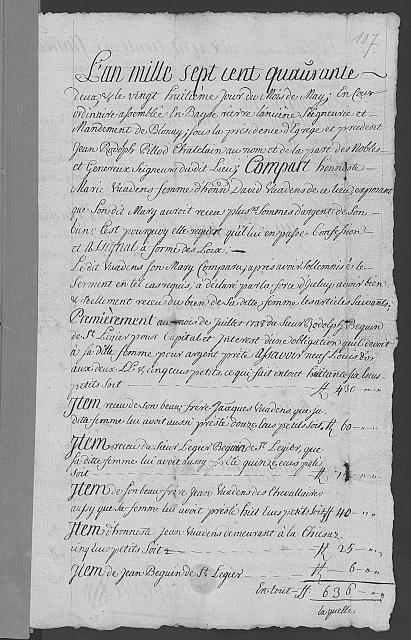 187.
L'an mille sept cent quaurante
deux & le vingt huitieme Jour du Mois de May; En Cour
ordinaire assemblée En Baye rierre l'anciene Seigneurie et
Mandement de Blonay; sous la présidence d'Egrege et prudent
Jean Rodolph Pillod Chatelain au nom et de la part des Nobles
et Genereux Seigneurs du dit Lieu; Compart honneste
Marie Vuadens femme d'honn. David Vuadens de ce lieu; exposant
que Son dit Mary auroit receu plus.rs Sommes d'argent de Son
bien; C'est pourquoy elle requiert qu'il luy en passe Confession
et à forme des Loix;
Le dit Vuadens Son Mary Comp. apres avoir Sollemnisé le
Serment en tel cas requis, a déclaré par la force d'iceluy avoir bien
& réellement receu du bien de Sa ditte femme les articles Suivants;
Premièrement au mois de Juillet 1738 du Sieur Rodolph Beguin
de St Legier pour Capital et Interest d'une obligation qu'il devoit
à sa ditte femme pour argent prété Asavoir neuf Louis d'or
aux deux LL & cinq ecus petits, ce qui fait en tout
petits Soit ff 430 „ „
Item receu de son beau frère Jaques Vuadens que sa
ditte femme lui avoit aussi prèsté douze ecus petits Soit ff 60 „ „
Item receu du Sieur Legier Beguin de St Legier, que
sa ditte femme lui avoit aussy prété quinze ecus petis
Soit ff „ „
Item de Son beau frère Jean Vuadens des Chevallaires
aussy que Sa femme lui avoit présté huit ecus petits Soit ff 40 „ „
Item d'honneste Jean Vuadens demeurant à la Chiesaz
cinq ecus petits Soit ff 25 „ „
Item de Jean Beguin de St Legier ff 6 „ „
En tout ff 636 „ „
laquelle